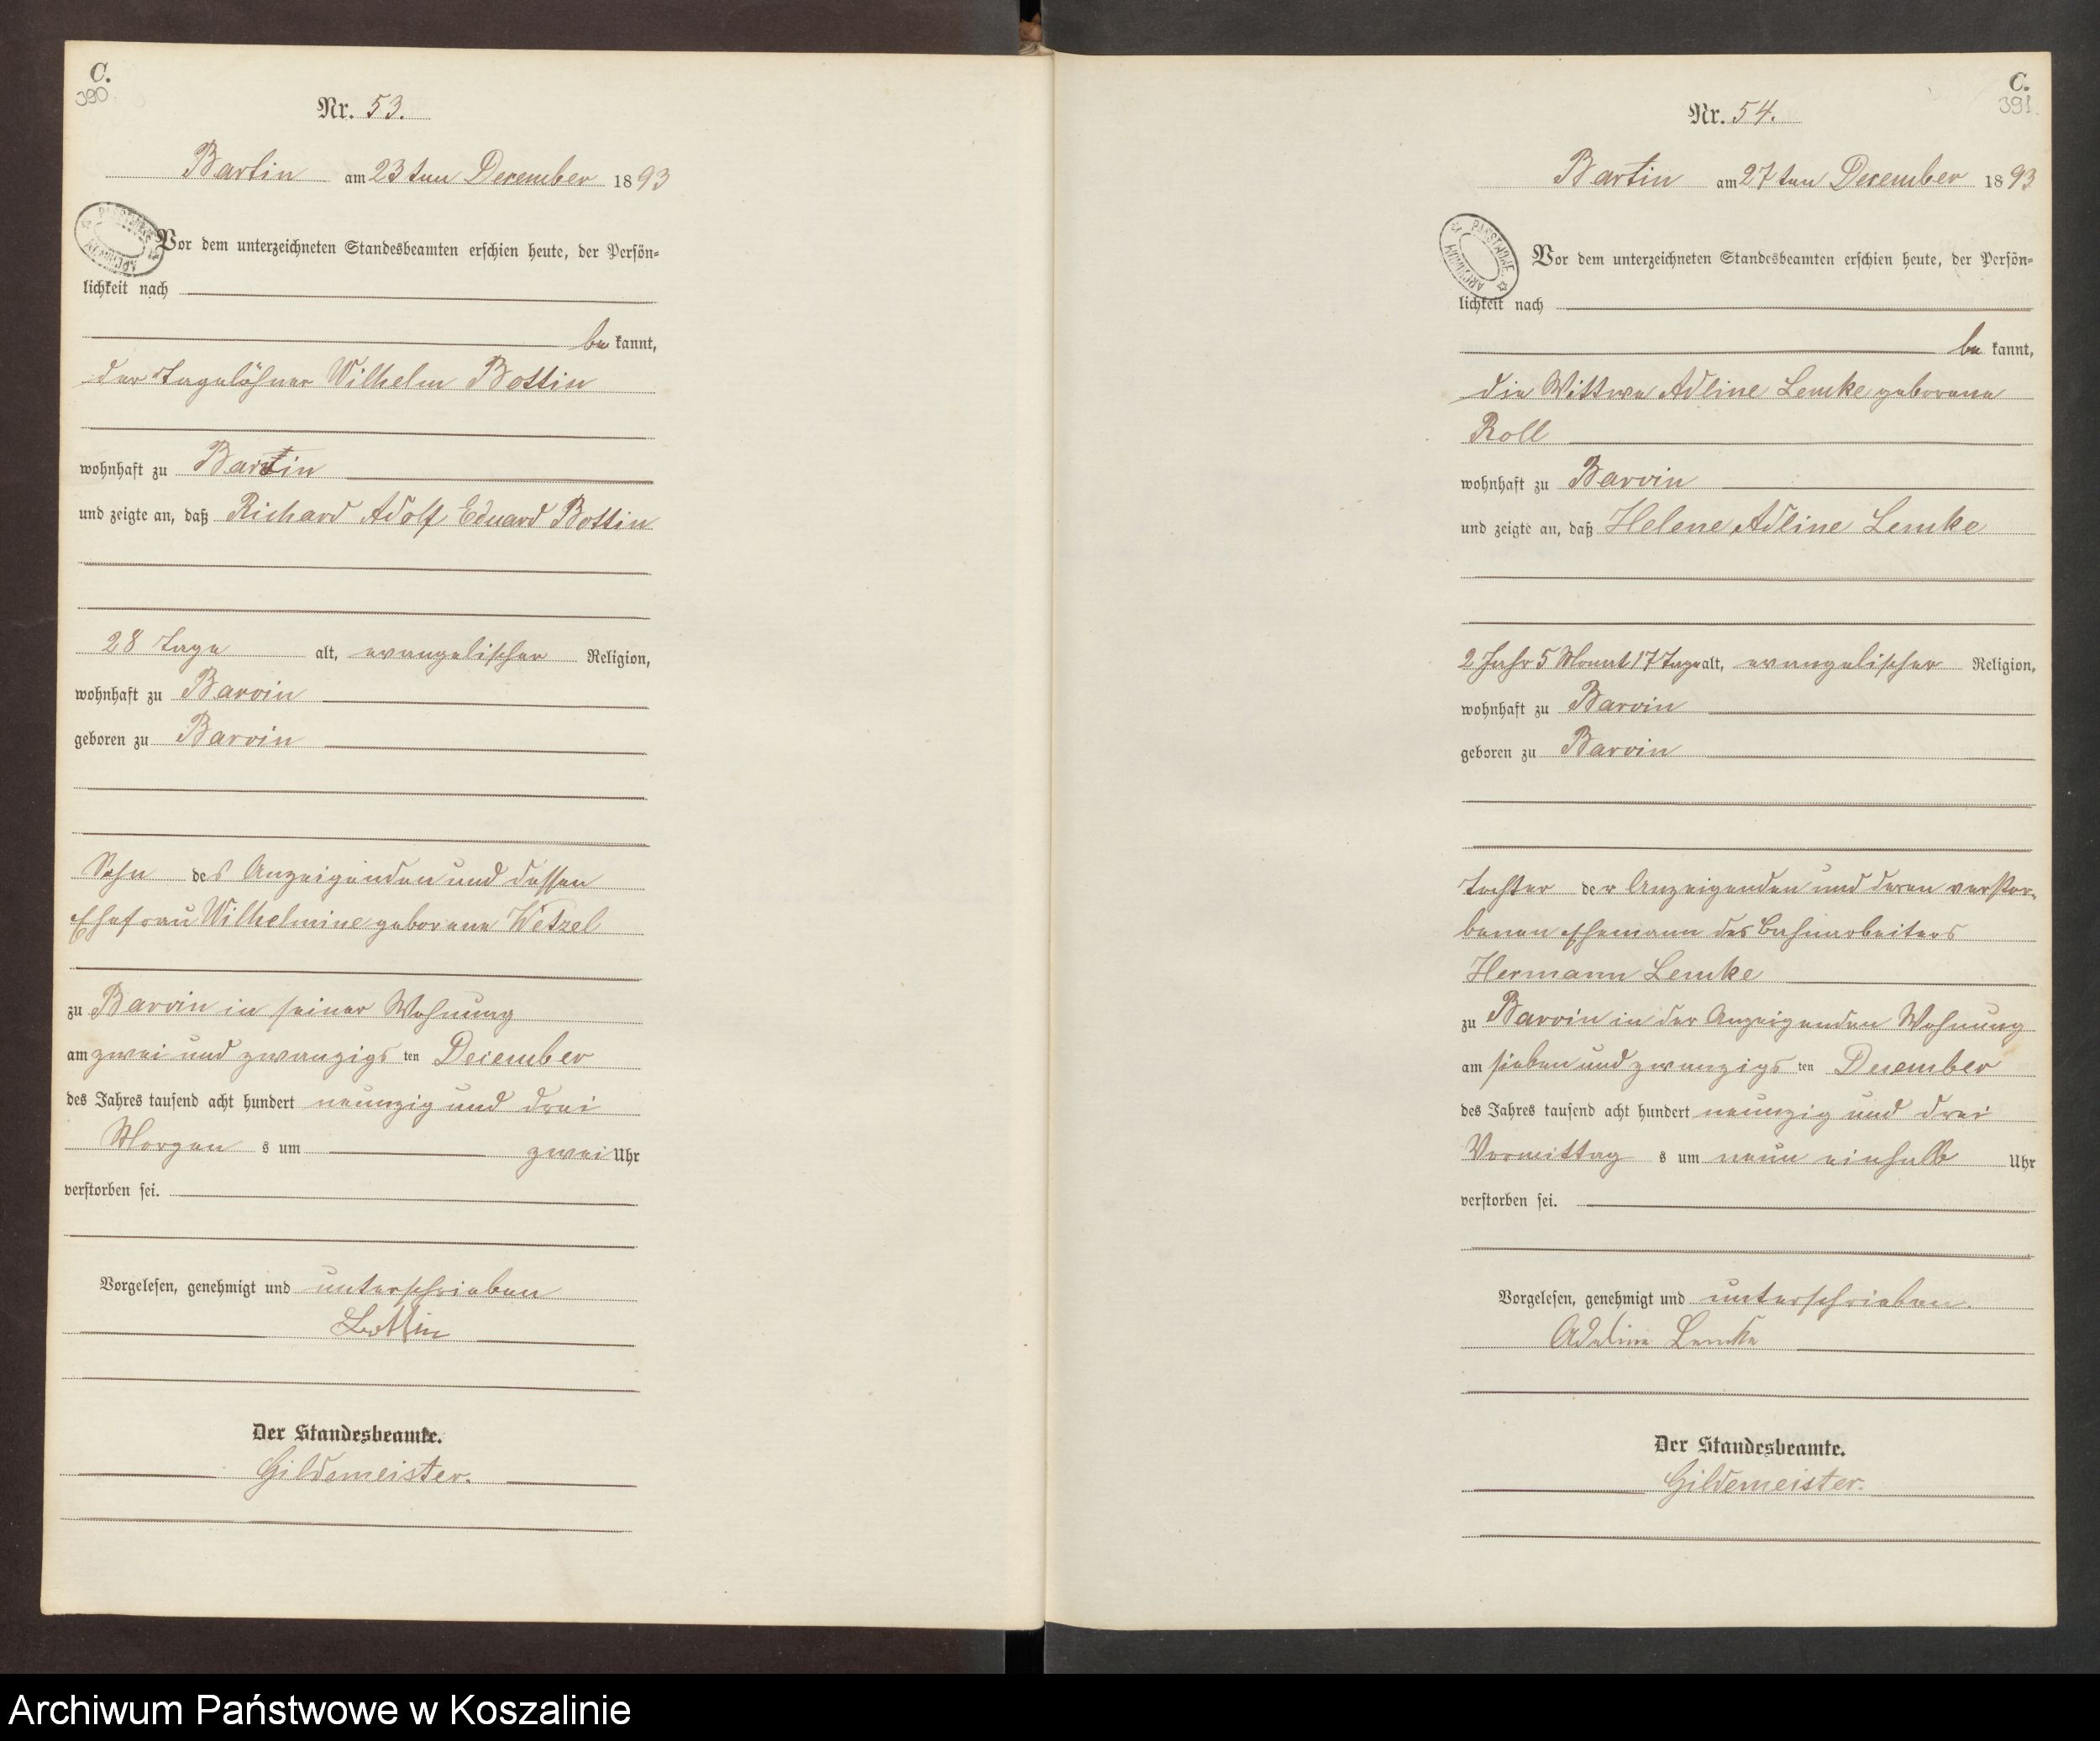 C.
390
Nr. 53.
Bartin am 23ten December 1893
PAŃSTWOWE ARCHIWUM
Vor dem unterzeichneten Standesbeamten erschien heute, der Persön-
lichkeit nach
be kannt,
der Tagelöhner Wilhelm Bottin
wohnhaft zu Bartin
und zeigte an, daß Richard Adolf Eduard Bottin
28 Tage alt, evangelischer Religion,
wohnhaft zu Barvin
geboren zu Barvin
Sohn des Anzeigenden und dessen
Ehefrau Wilhelmine geborene Wetzel
zu Barvin in seiner Wohnung
am zwei und zwanzigs ten December
des Jahres tausend acht hundert neunzig und drei
Morgen s um zwei Uhr
verstorben sei.
Vorgelesen, genehmigt und unterschrieben
Bottin
Der Standesbeamte.
Gildemeister.
C.
391
Nr. 54.
Bartin am 27ten December 1893
PAŃSTWOWE ARCHIWUM
Vor dem unterzeichneten Standesbeamten erschien heute, der Persön-
lichkeit nach
be kannt,
die Wittwe Adline Lemke geborene
Roll
wohnhaft zu Barvin
und zeigte an, daß Helene Adline Lemke
2 Jahr 5 Monat 17 Tage alt, evangelischer Religion,
wohnhaft zu Barvin
geboren zu Barvin
Tochter der Anzeigenden und deren verstor-
benen Ehemann des Bahnarbeiters
Hermann Lemke
zu Barvin in der Anzeigenden Wohnung
am sieben und zwanzigs ten December
des Jahres tausend acht hundert neunzig und drei
Vormittag s um neun einhalb Uhr
verstorben sei.
Vorgelesen, genehmigt und unterschrieben.
Adeline Lemke
Der Standesbeamte.
Gildemeister.
Archiwum Państwowe w Koszalinie